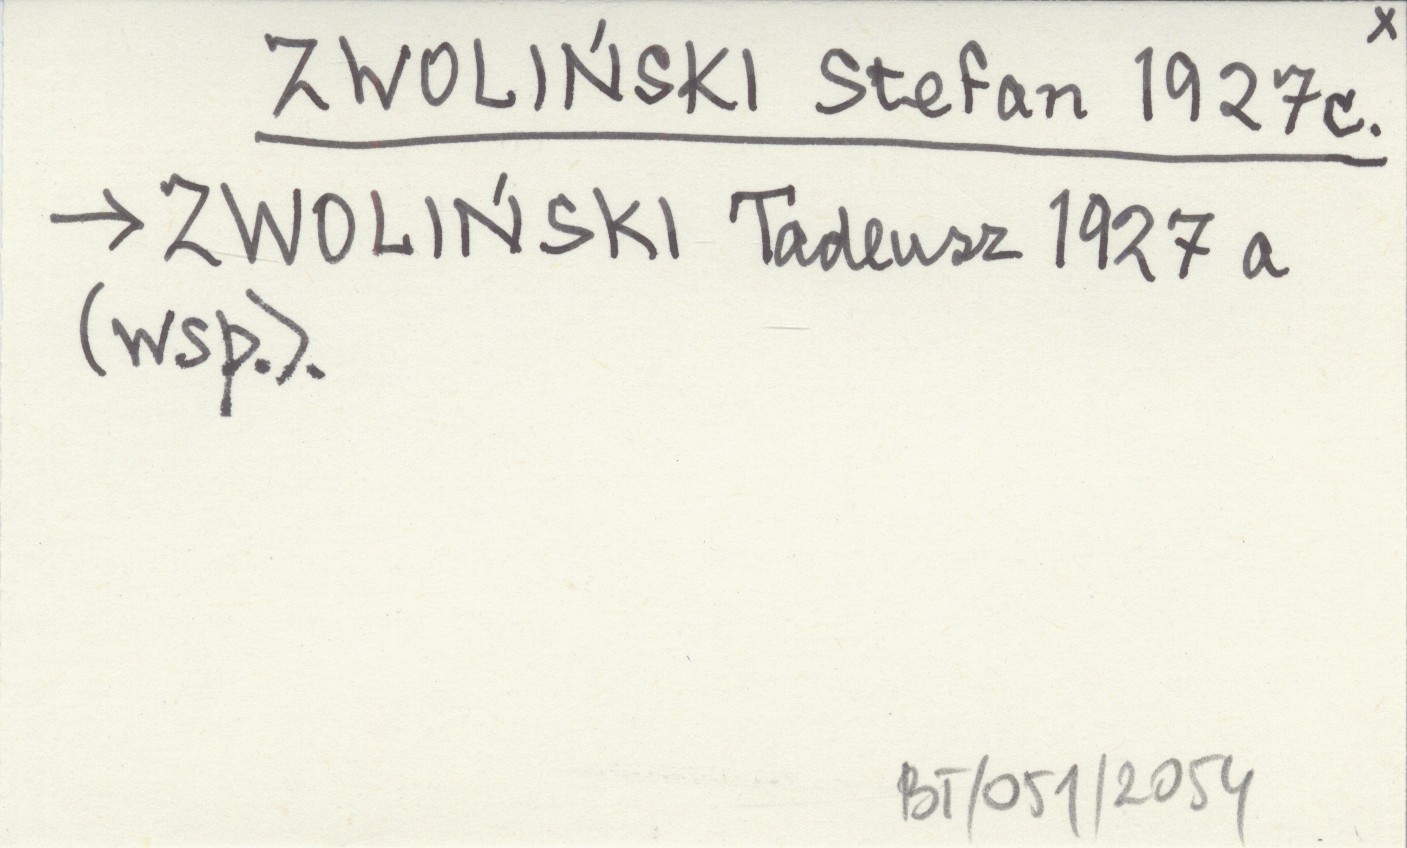 x
ZWOLIŃSKI Stefan 1927c.
→ ZWOLIŃSKI Tadeusz 1927 a
(wsp.).
BT/051/2054